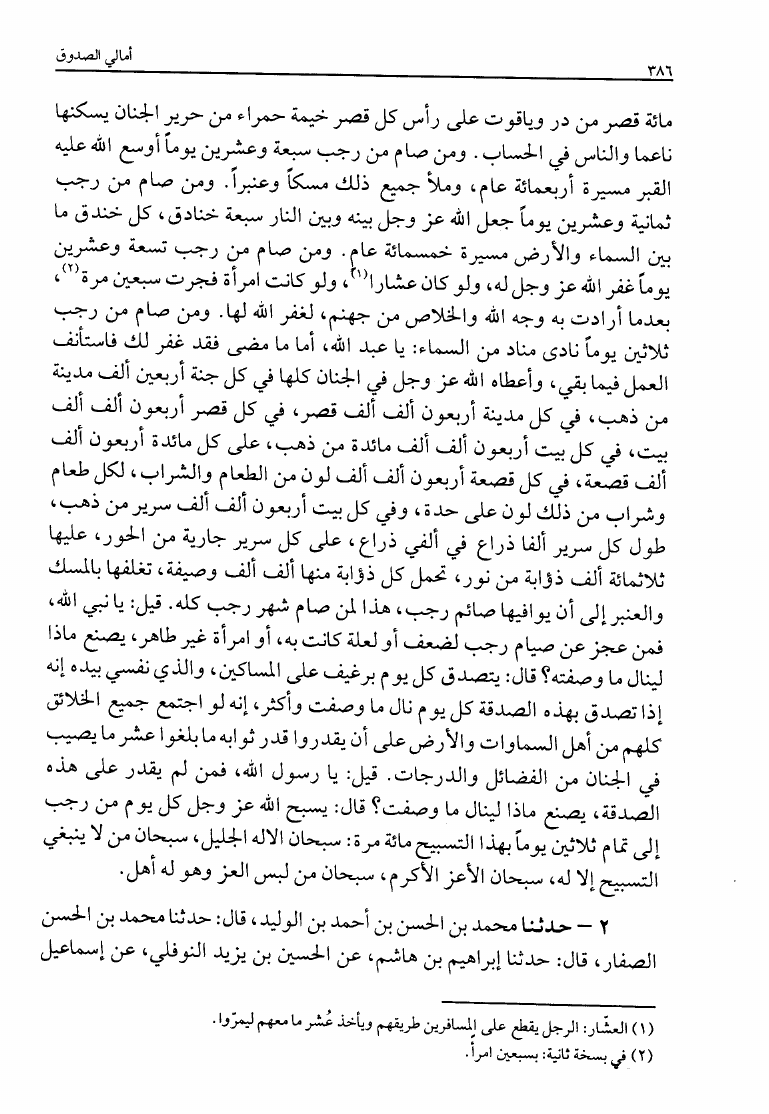 أمالي الصدوق
٣٨٦
مائة قصر من در وياقوت على رأس كل قصر خيمة حمراء من حرير الجنان يسكنها
ناعما والناس في الحساب. ومن صام من رجب سبعة وعشرين يوماً أوسع الله عليه
القبر مسيرة أربعمائة عام، وملأ جميع ذلك مسكاً وعنبراً. ومن صام من رجب
ثمانية وعشرين يوماً جعل الله عز وجل بينه وبين النار سبعة خنادق، كل خندق ما
بين السماء والأرض مسيرة خمسمائة عام. ومن صام من رجب تسعة وعشرين
يوماً غفر الله عز وجل له، ولو كان عشارا(١)، ولو كانت امرأة فجرت سبعين مرة(٢)،
بعدما أرادت به وجه الله والخلاص من جهنم، لغفر الله لها. ومن صام من رجب
ثلاثين يوماً نادى مناد من السماء: يا عبد الله، أما ما مضى فقد غفر لك فاستأنف
العمل فيما بقي، وأعطاه الله عز وجل في الجنان كلها في كل جنة أربعين ألف مدينة
من ذهب، في كل مدينة أربعون ألف ألف قصر، في كل قصر أربعون ألف ألف
بيت، في كل بيت أربعون ألف ألف مائدة من ذهب، على كل مائدة أربعون ألف
ألف قصعة، في كل قصعة أربعون ألف ألف لون من الطعام والشراب، لكل طعام
وشراب من ذلك لون على حدة، وفي كل بيت أربعون ألف ألف سرير من ذهب،
طول كل سرير ألفا ذراع في ألفي ذراع، على كل سرير جارية من الحور، عليها
ثلاثمائة ألف ذؤابة من نور، تحمل كل ذؤابة منها ألف ألف وصيفة، تغلفها بالمسك
والعنبر إلى أن يوافيها صائم رجب، هذا لمن صام شهر رجب كله. قيل: يا نبي الله،
فمن عجز عن صيام رجب لضعف أو لعلة كانت به، أو امرأة غير طاهر، يصنع ماذا
لينال ما وصفته؟ قال: يتصدق كل يوم برغيف على المساكين، والذي نفسي بيده إنه
إذا تصدق بهذه الصدقة كل يوم نال ما وصفت وأكثر، إنه لو اجتمع جميع الخلائق
كلهم من أهل السماوات والأرض على أن يقدروا قدر ثوابه ما بلغوا عشر ما يصيب
في الجنان من الفضائل والدرجات. قيل: يا رسول الله، فمن لم يقدر على هذه
الصدقة، يصنع ماذا لينال ما وصفت؟ قال: يسبح الله عز وجل كل يوم من رجب
إلى تمام ثلاثين يوماً بهذا التسبيح مائة مرة: سبحان الاله الجليل، سبحان من لا ينبغي
التسبيح إلا له، سبحان الأعز الأكرم، سبحان من لبس العز وهو له أهل.
٢ - حدثنا محمد بن الحسن بن أحمد بن الوليد، قال: حدثنا محمد بن الحسن
الصفار، قال: حدثنا إبراهيم بن هاشم، عن الحسين بن يزيد النوفلي، عن إسماعيل
(١) العشّار: الرجل يقطع على المسافرين طريقهم ويأخذ عُشر ما معهم ليمرّوا.
(٢) في بسخة ثانية: بسبعين امرأ.